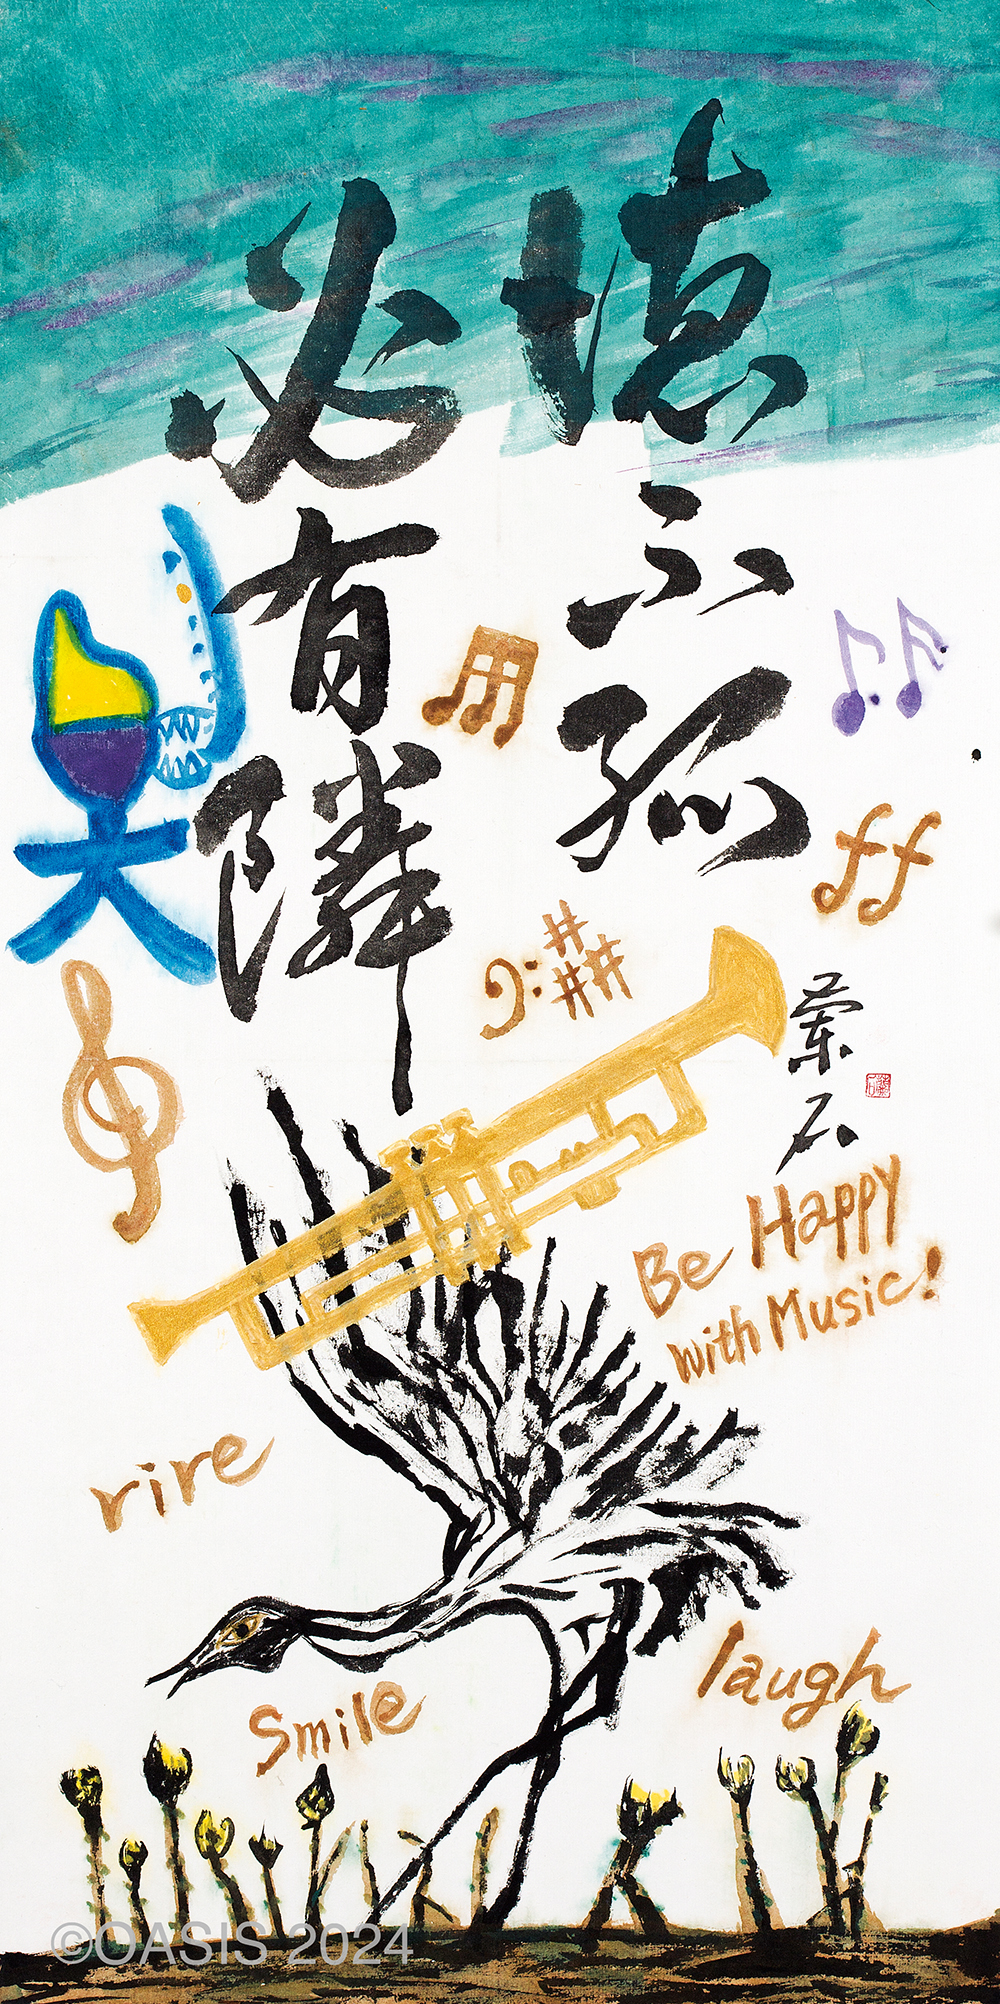 徳不孤
必有隣
蘭石
ff
Be Happy
with Music!
rire
smile
laugh
©OASIS 2024